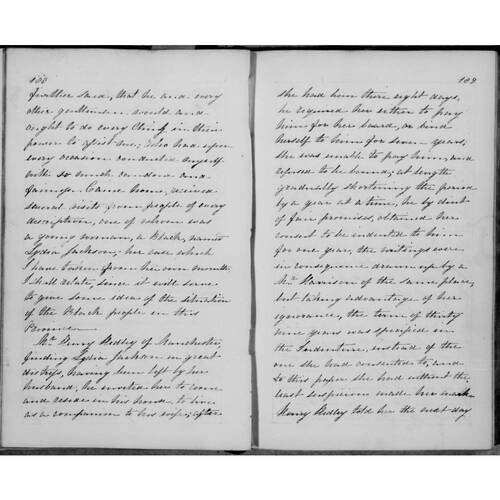 108
further said, that he and every
other gentleman would and
ought to do every thing in their
power to assist me; who had upon
every occasion conducted myself
with so much candour and
fairness. Came home, received
several visits from people of every
description, one of whom was
a young woman, a Black, named
Lydia Jackson; her case which
I have taken from her own mouth
I shall relate, since it will serve
to give some idea of the situation
of the Black people in this
Province
Mr. Henry Hedley of Manchester,
finding Lydia Jackson in great
distress, having been left by her
husband, he invited her to come
and reside in his house to live
as a companion to his wife; after
109
she had been there eight days,
he required her either to pay
him for her board, or bind
herself to him for seven years;
she was unable to pay him, and
refused to be bound; at length
gradually shortening the period
by a year at a time, he by dint
of fair promises, obtained her
consent to be indented to him
for one year, the writings were
in consequence drawn up by a
Mr. Harrison of the same place,
but taking advantage of her
ignorance, the term of thirty
nine years was specified in
the Indenture, instead of the
one she had consented to, and
to this paper she had without the
least suspicion made her mark
Henry Hedley told her the next day